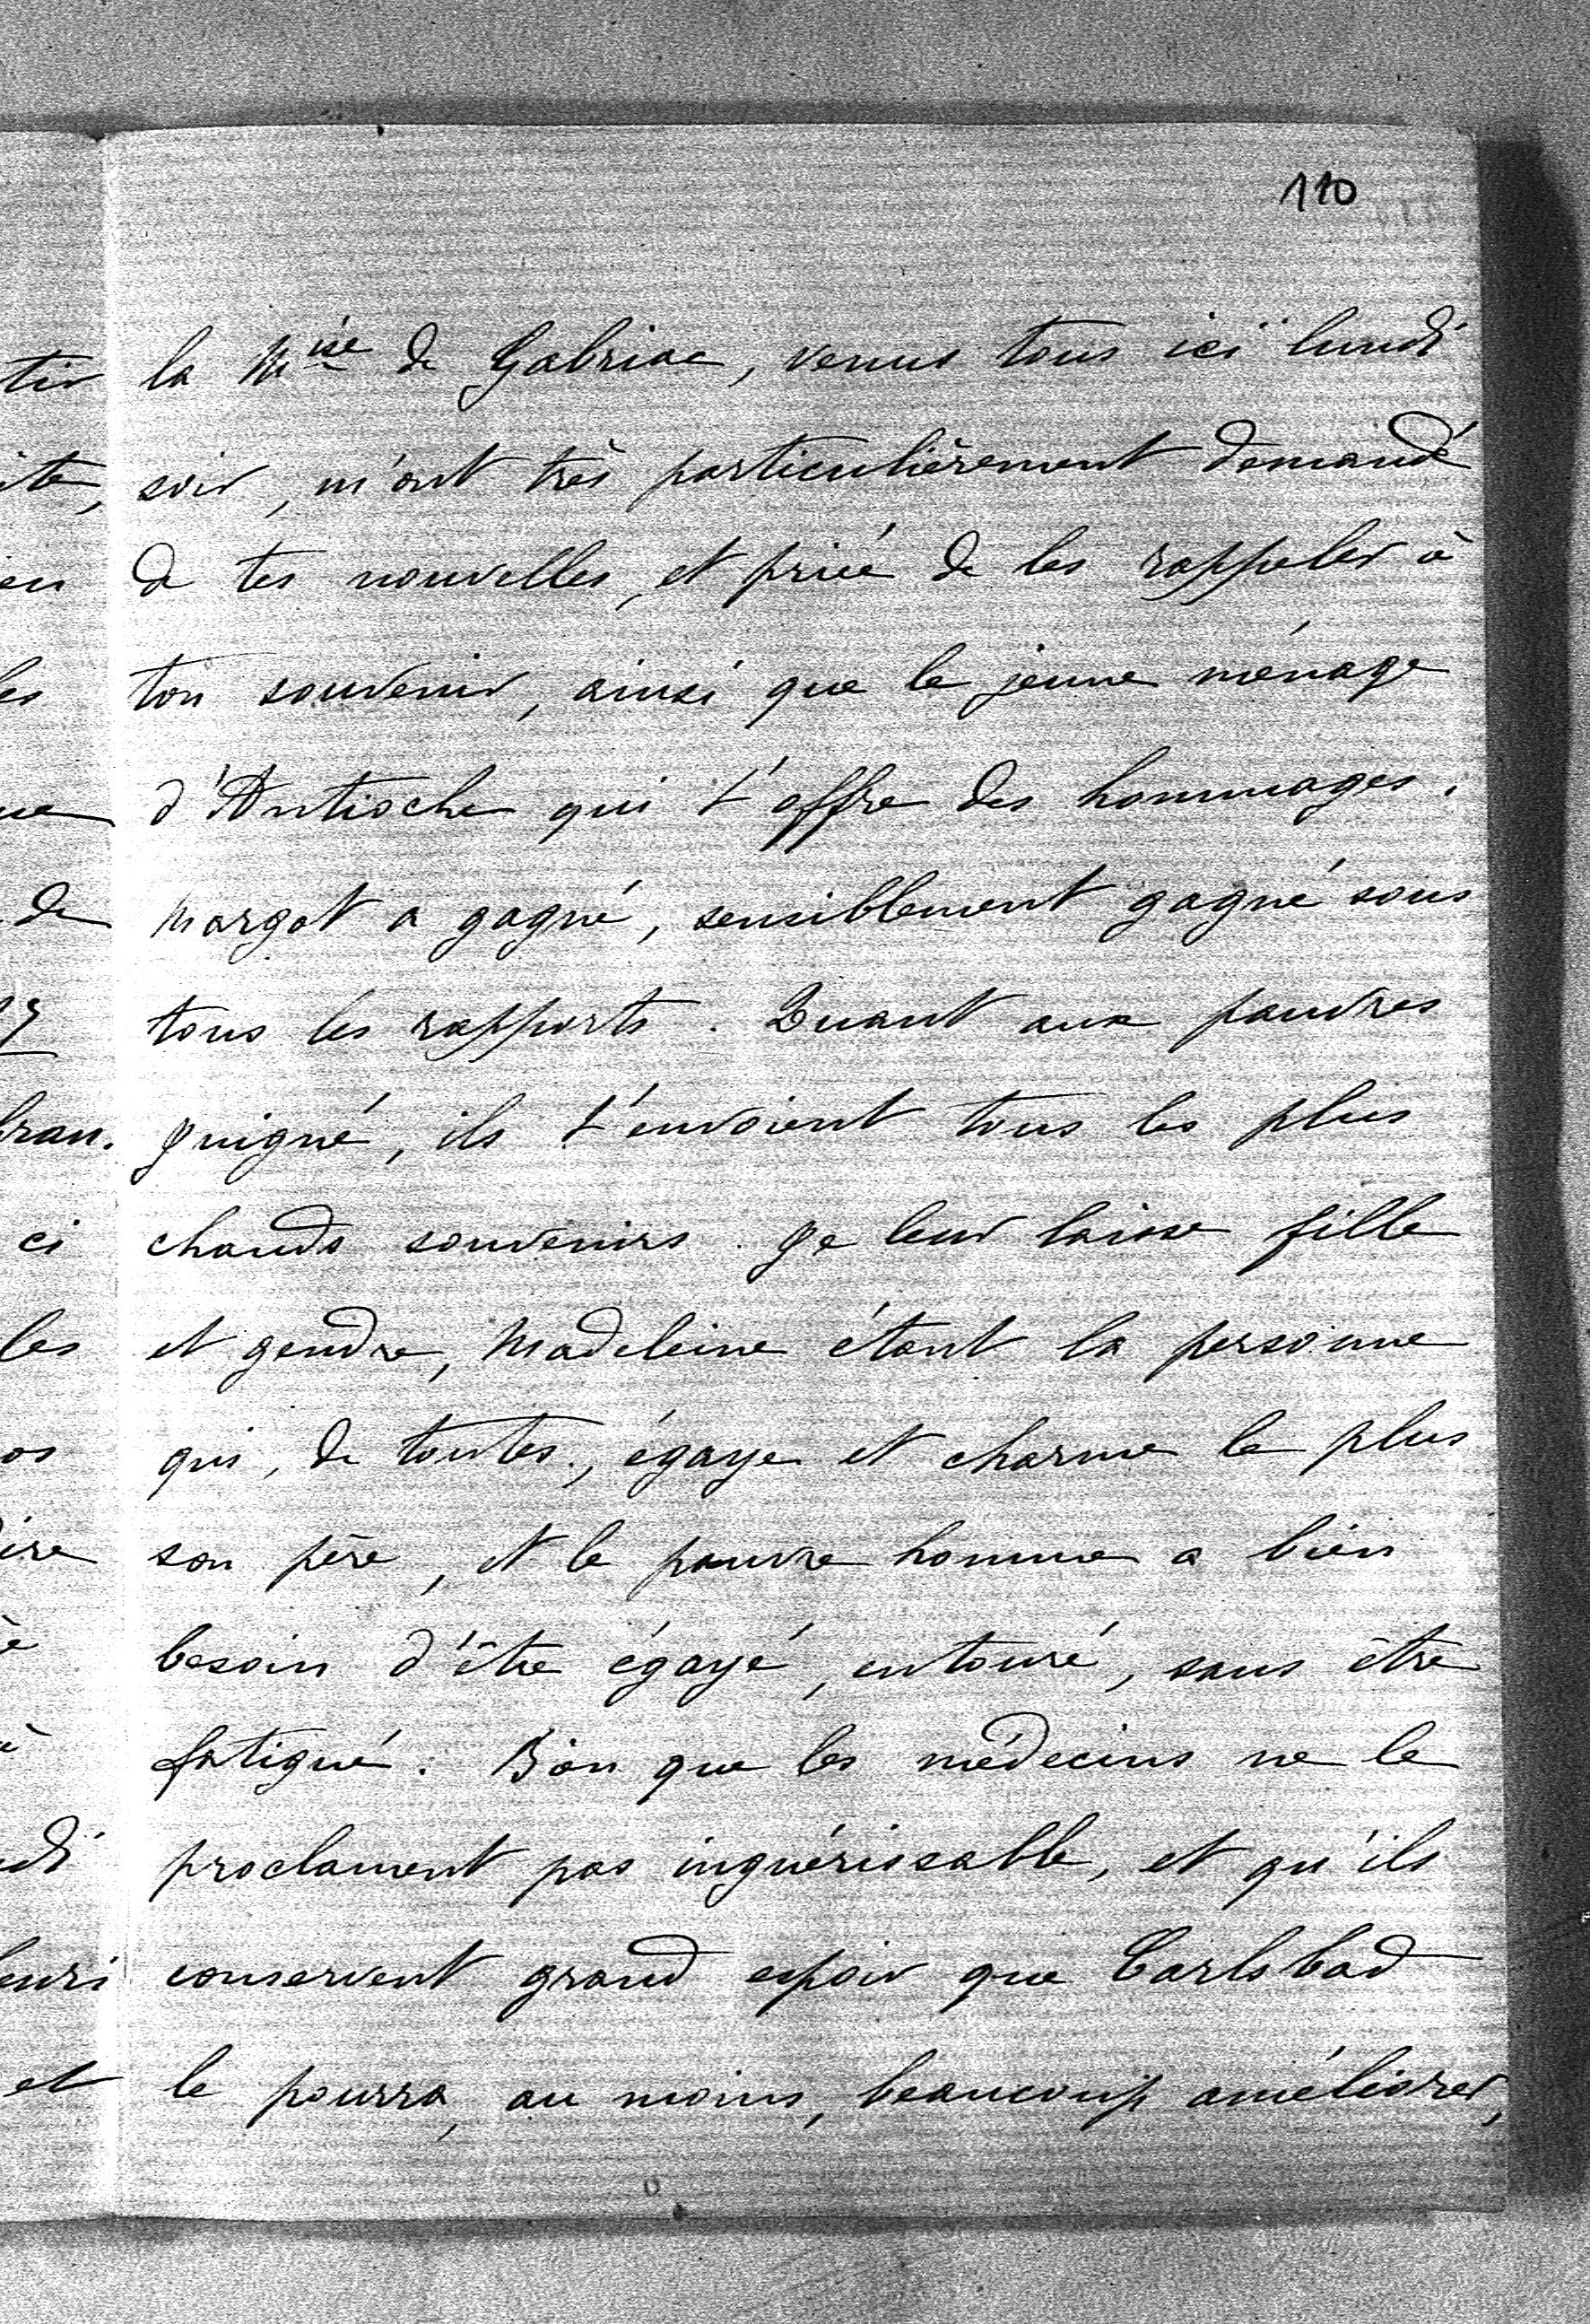 110
la M^ise de Gabriac, venus tous ici lundi
soir, m'ont très particulièrement demandé
de tes nouvelles, et priée de les rappeler à
ton souvenir, ainsi que le jeune ménage
d'Antioche qui t'offre des hommages.
Margot a gagné, sensiblement gagné sous
tous les rapports. Quant aux pauvres
Guigné, ils t'envoient tous les plus
chauds souvenirs. Je leur laisse fille
et gendre, Madeleine étant la personne
qui, de toutes, égaye et charme le plus
son père, et le pauvre homme a bien
besoin d'être égayé, entouré, sans être
fatigué. Bien que les médecins ne le
proclament pas inguérissable, et qu'ils
conservent grand espoir que Carlsbad
le pourra, au moins, beaucoup améliorer,